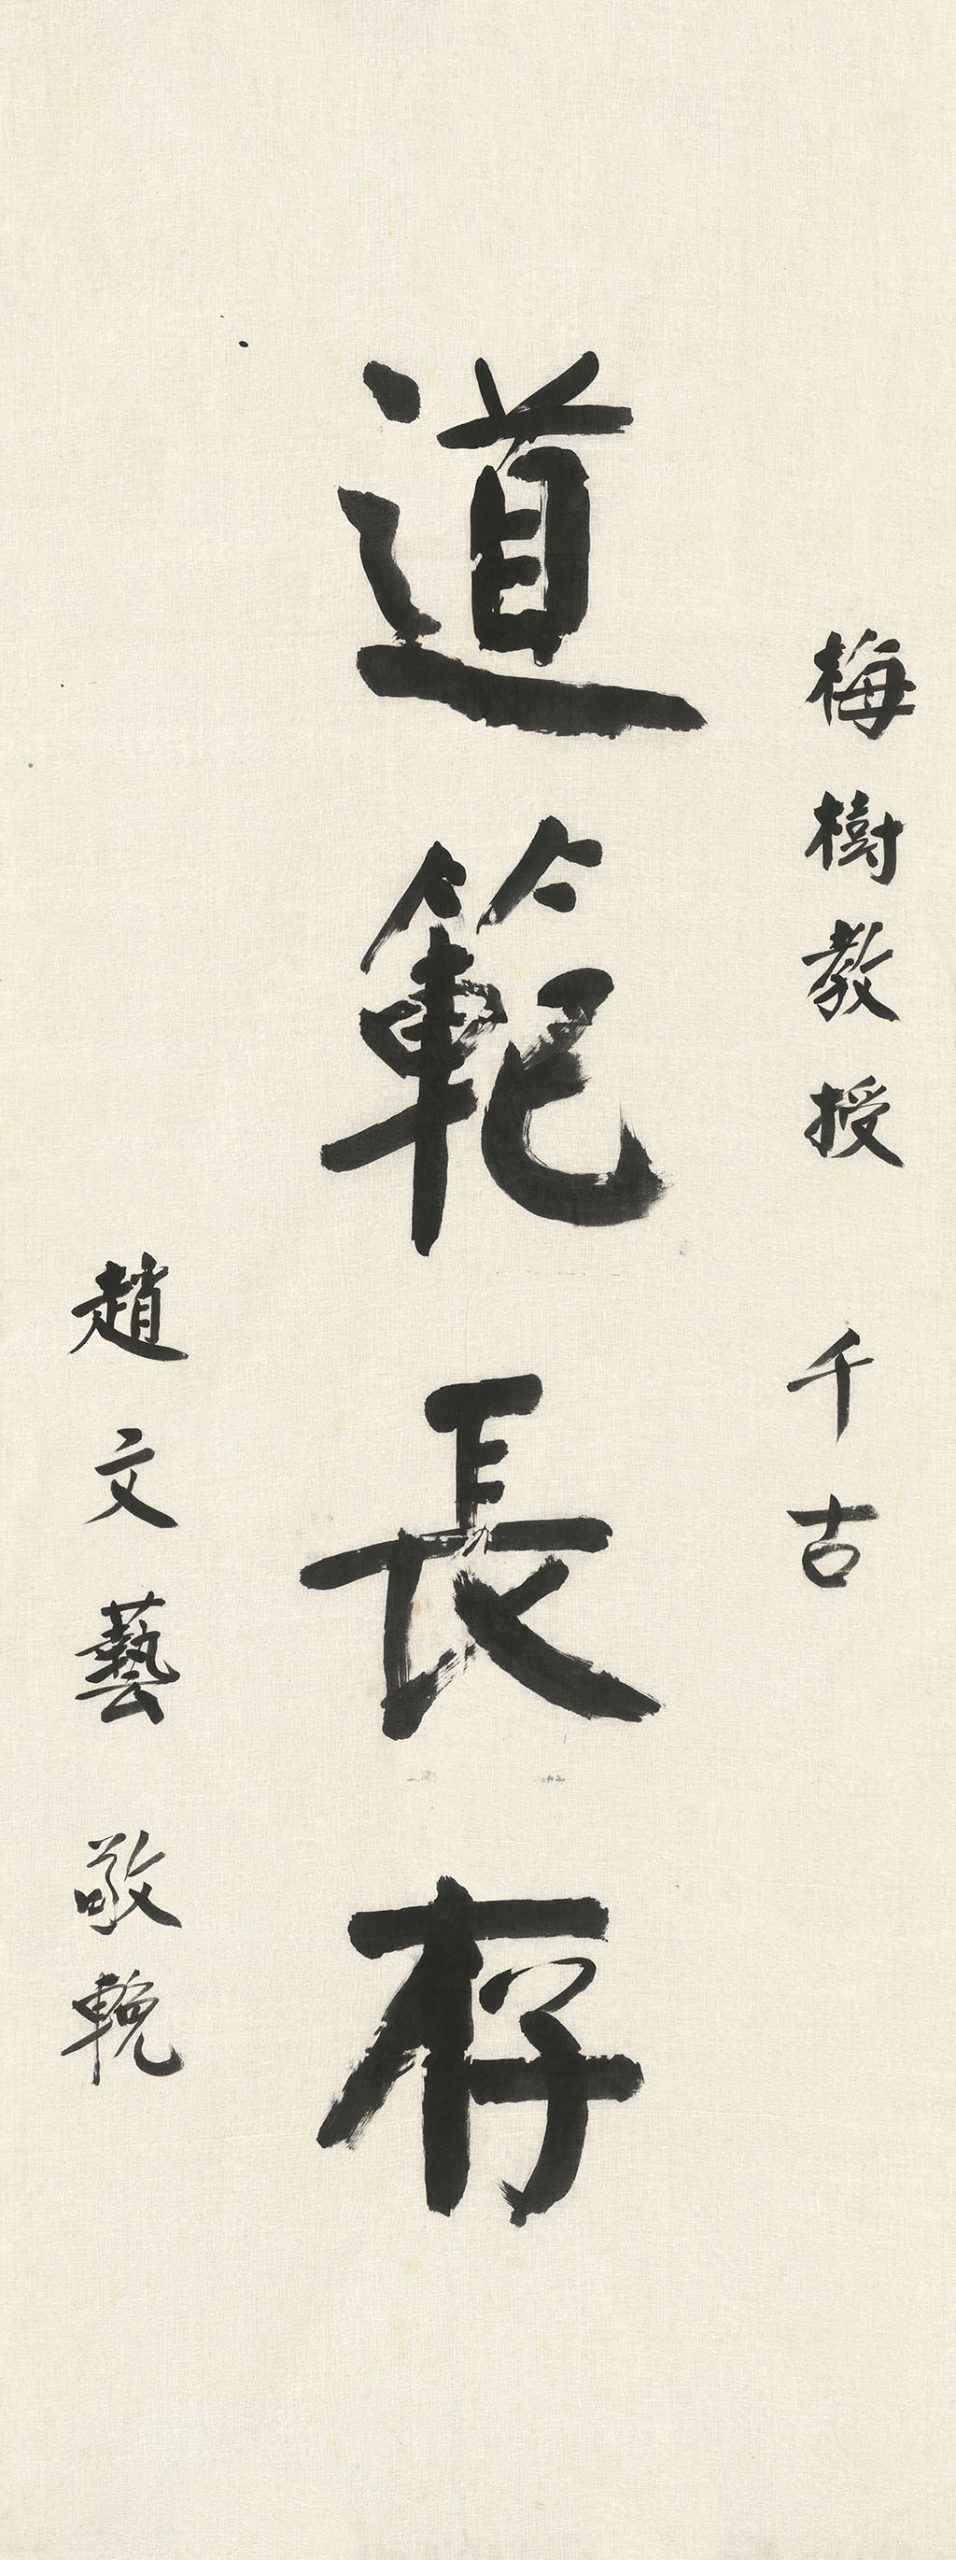 梅樹教授 千古
道範長存
趙文藝 敬輓